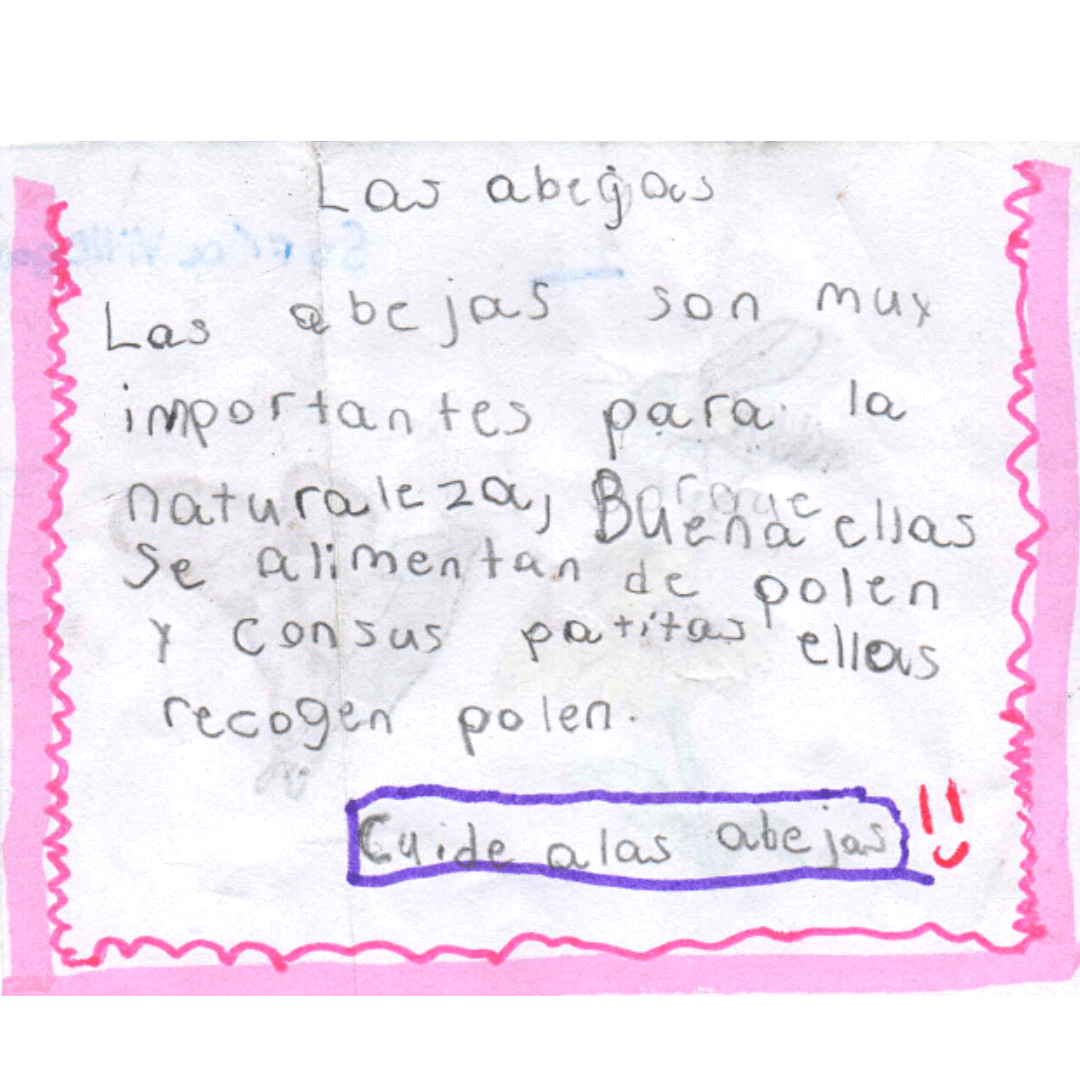 Las abejas
Las abejas son muy
importantes para la
naturaleza, Buena ellas
se alimentan de polen
y consus patitas ellas
recogen polen.
Cuide alas abejas